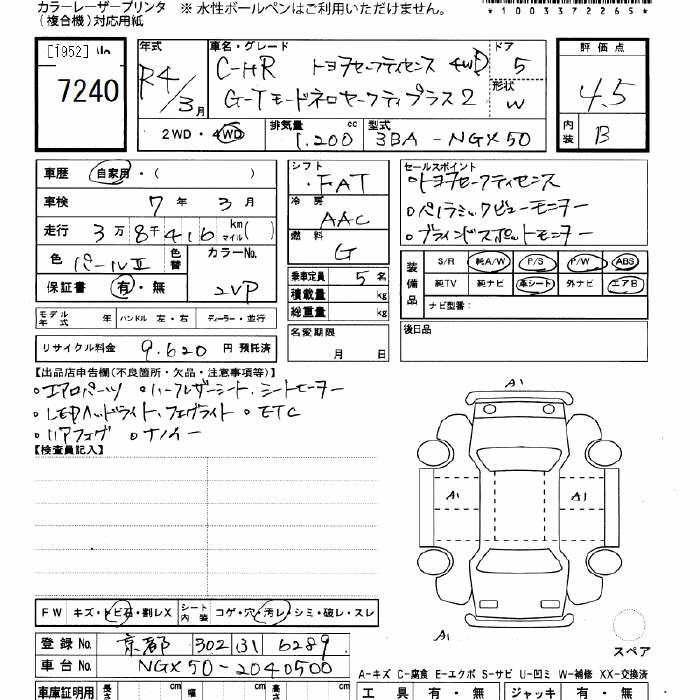 カラーレーザープリンタ ※ 水性ボールペンはご利用いただけません。
（複合機）対応用紙
*1003372265*
[1952]
7240
年式 R4/3月
車名・グレード C-HR トヨタセーフティセンス 4WD
G-Tモードネロセーフティプラス2
ドア 5
形状 W
2WD・4WD
排気量 1,200 cc
型式 3BA-NGX50
評価点 4.5
内装 B
車歴 自家用・( )
車検 7年 3月
走行 3万8千416 km マイル( )
色 パールII 色替
カラーNo. 2VP
保証書 有・無
シフト FAT
冷房 AAC
燃料 G
乗車定員 5名
積載量 kg
総重量 kg
セールスポイント
・トヨタセーフティセンス
・パノラミックビューモニター
・ブラインドスポットモニター
装備品 S/R 純A/W P/S P/W ABS
純TV 純ナビ 革シート 外ナビ エアB
ナビ型番:
モデル年式 年 ハンドル 左・右 ディーラー・並行
名変期限 月 日
後日品
リサイクル料金 9,620円 預託済
【出品店申告欄(不良箇所・欠品・注意事項等)】
・エアロパーツ ・ハーフレザーシート、シートヒーター
・LEDヘッドライト、フォグライト ・ETC
・リアフォグ ・ナノイー
【検査員記入】
A1
A1 A1
A1
スペア
FW キズ・トビ石・割レX シート内装 コゲ・穴・汚レ・シミ・破レ・スレ
登録No. 京都 302 131 6289
車台No. NGX50-2040500
A-キズ C-腐食 E-エクボ S-サビ U-凹ミ W-補修 XX-交換済
車庫証明用 長さ cm 幅 cm cm
工具 有・無 ジャッキ 有・無